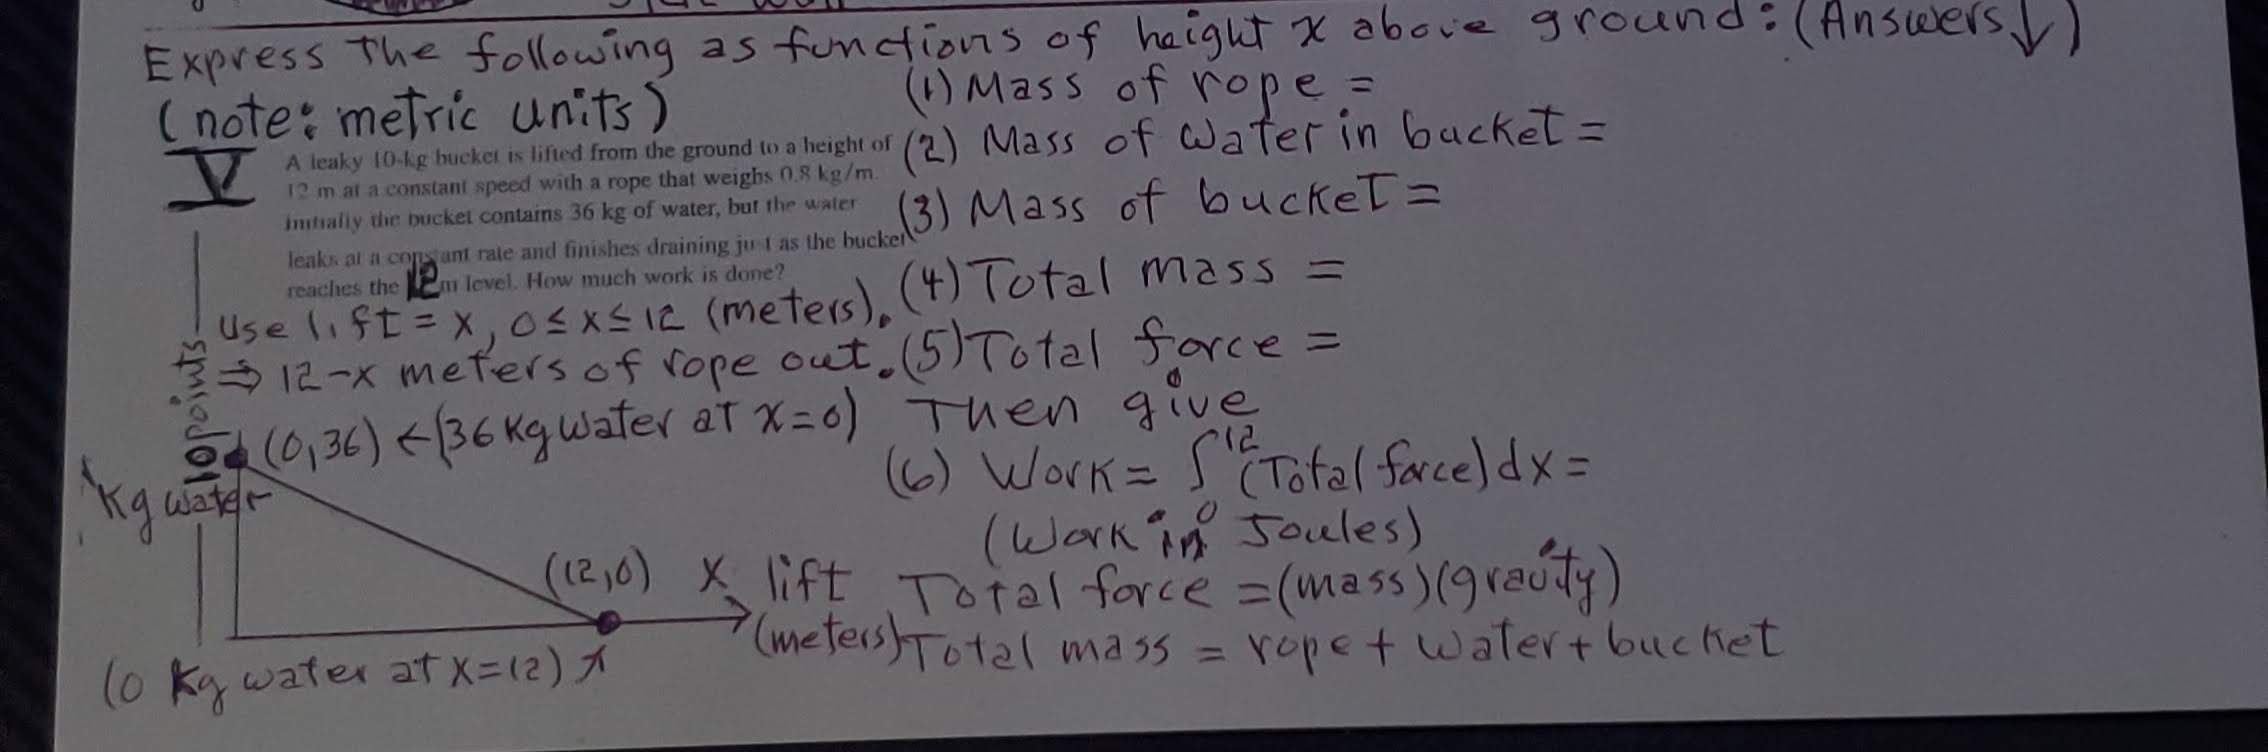 Express the following as functions of height x above ground: (Answers↓)
(note: metric units)
(1) Mass of rope =
(2) Mass of water in bucket =
(3) Mass of bucket =
(4) Total mass =
(5) Total force =
Then give
(6) Work = ∫₀¹² (Total force) dx =
(Work in Joules)
Total force = (mass)(gravity)
Total mass = rope + water + bucket
V
A leaky 10-kg bucket is lifted from the ground to a height of
12 m at a constant speed with a rope that weighs 0.8 kg/m.
Initially the bucket contains 36 kg of water, but the water
leaks at a constant rate and finishes draining just as the bucket
reaches the 12 m level. How much work is done?
Use lift = x, 0 ≤ x ≤ 12 (meters).
⇒ 12-x meters of rope out.
10 points
(0,36) ← (36 kg water at x=0)
Kg water
(12,0) x lift
(meters)
(0 kg water at x=12)